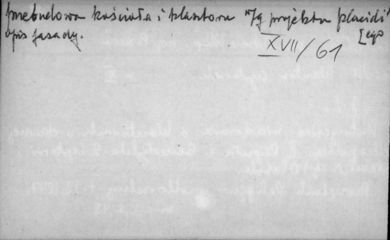 przebudowa kościoła i klasztoru wg projektu Placidi'
[ego
opis fasady.
XVII/61